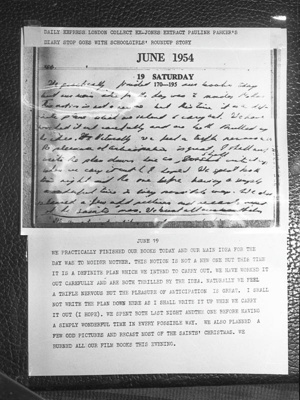 DAILY EXPRESS LONDON COLLECT EX-JONES EXTRACT PAULINE PARKER'S
DIARY STOP GOES WITH SCHOOLGIRLS' ROUNDUP STORY
JUNE 1954
19 SATURDAY
We practically finished our books today
and our main idea for the day was to murder Mother.
This notion is not a new one but this time it is a definite
plan which we intend to carry out. We have
worked it out carefully and are both thrilled by
the idea. Naturally we feel a trifle nervous but
the pleasure of anticipation is great. I shall not
write the plan down here as I shall write it up
when we carry it out (I hope). We spent both
last night and the one before having a simply
wonderful time in every possible way. We also
planned a few odd pictures and recast most
of the saints
JUNE 19
WE PRACTICALLY FINISHED OUR BOOKS TODAY AND OUR MAIN IDEA FOR THE
DAY WAS TO MURDER MOTHER. THIS NOTION IS NOT A NEW ONE BUT THIS TIME
IT IS A DEFINITE PLAN WHICH WE INTEND TO CARRY OUT. WE HAVE WORKED IT
OUT CAREFULLY AND ARE BOTH THRILLED BY THE IDEA. NATURALLY WE FEEL
A TRIFLE NERVOUS BUT THE PLEASURE OF ANTICIPATION IS GREAT. I SHALL
NOT WRITE THE PLAN DOWN HERE AS I SHALL WRITE IT UP WHEN WE CARRY
IT OUT (I HOPE). WE SPENT BOTH LAST NIGHT AND THE ONE BEFORE HAVING
A SIMPLY WONDERFUL TIME IN EVERY POSSIBLE WAY. WE ALSO PLANNED A
FEW ODD PICTURES AND RECAST MOST OF THE SAINTS' CHRISTMAS. WE
BURNED ALL OUR FILM BOOKS THIS EVENING.